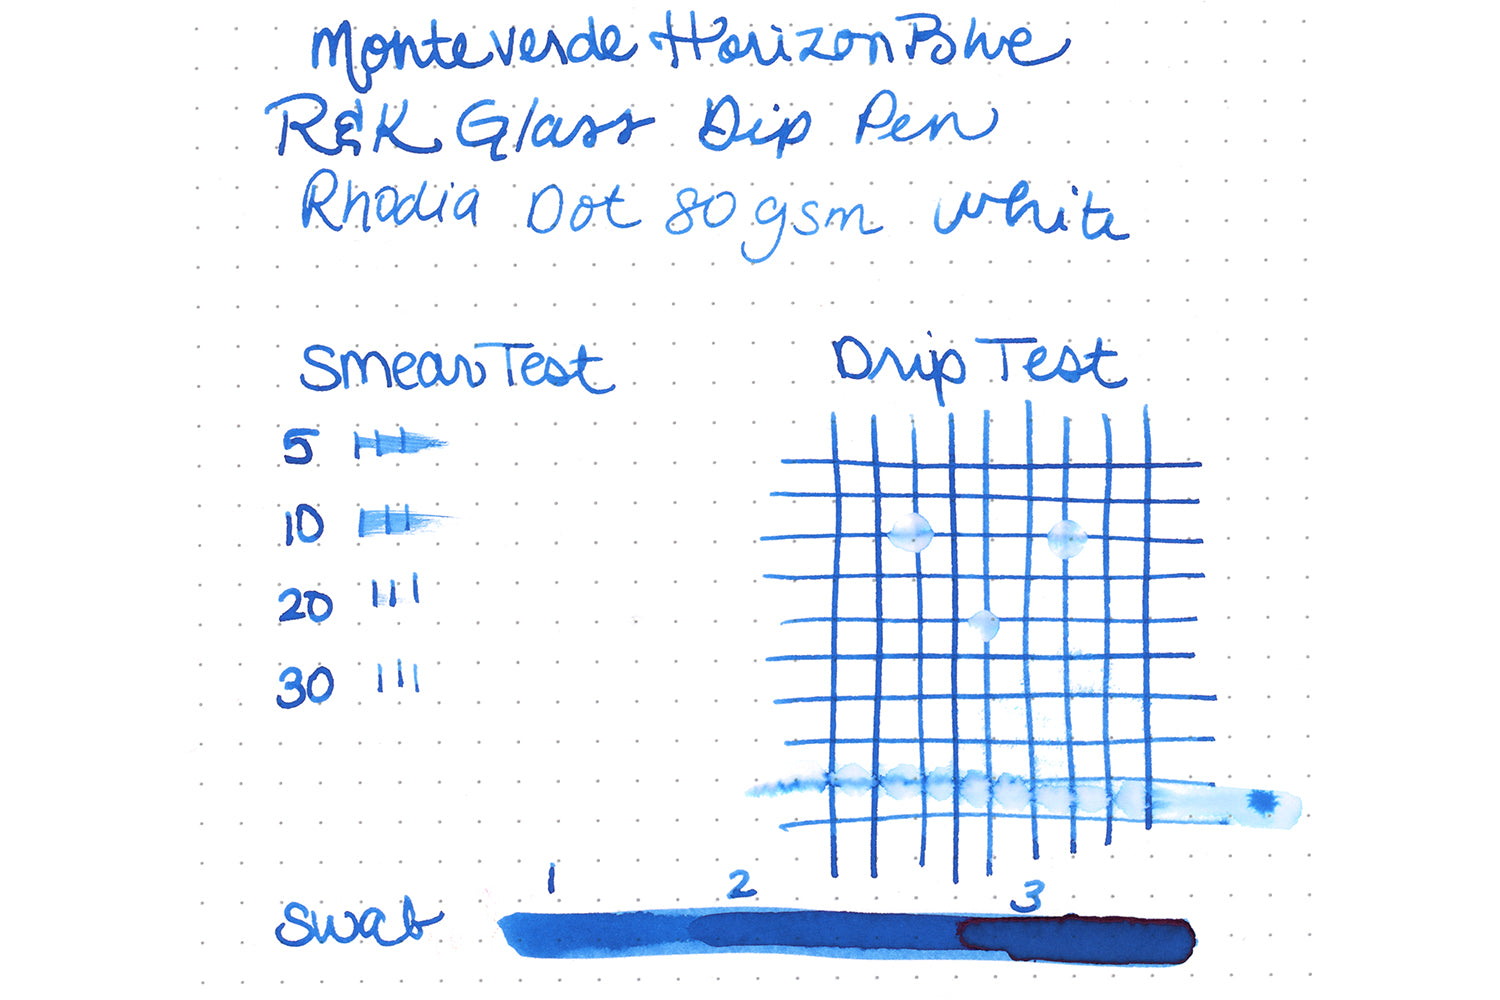 Monteverde Horizon Blue
R&K Glass Dip Pen
Rhodia Dot 80 gsm white
Smear Test
Drip Test
5
10
20
30
1 2 3
Swab